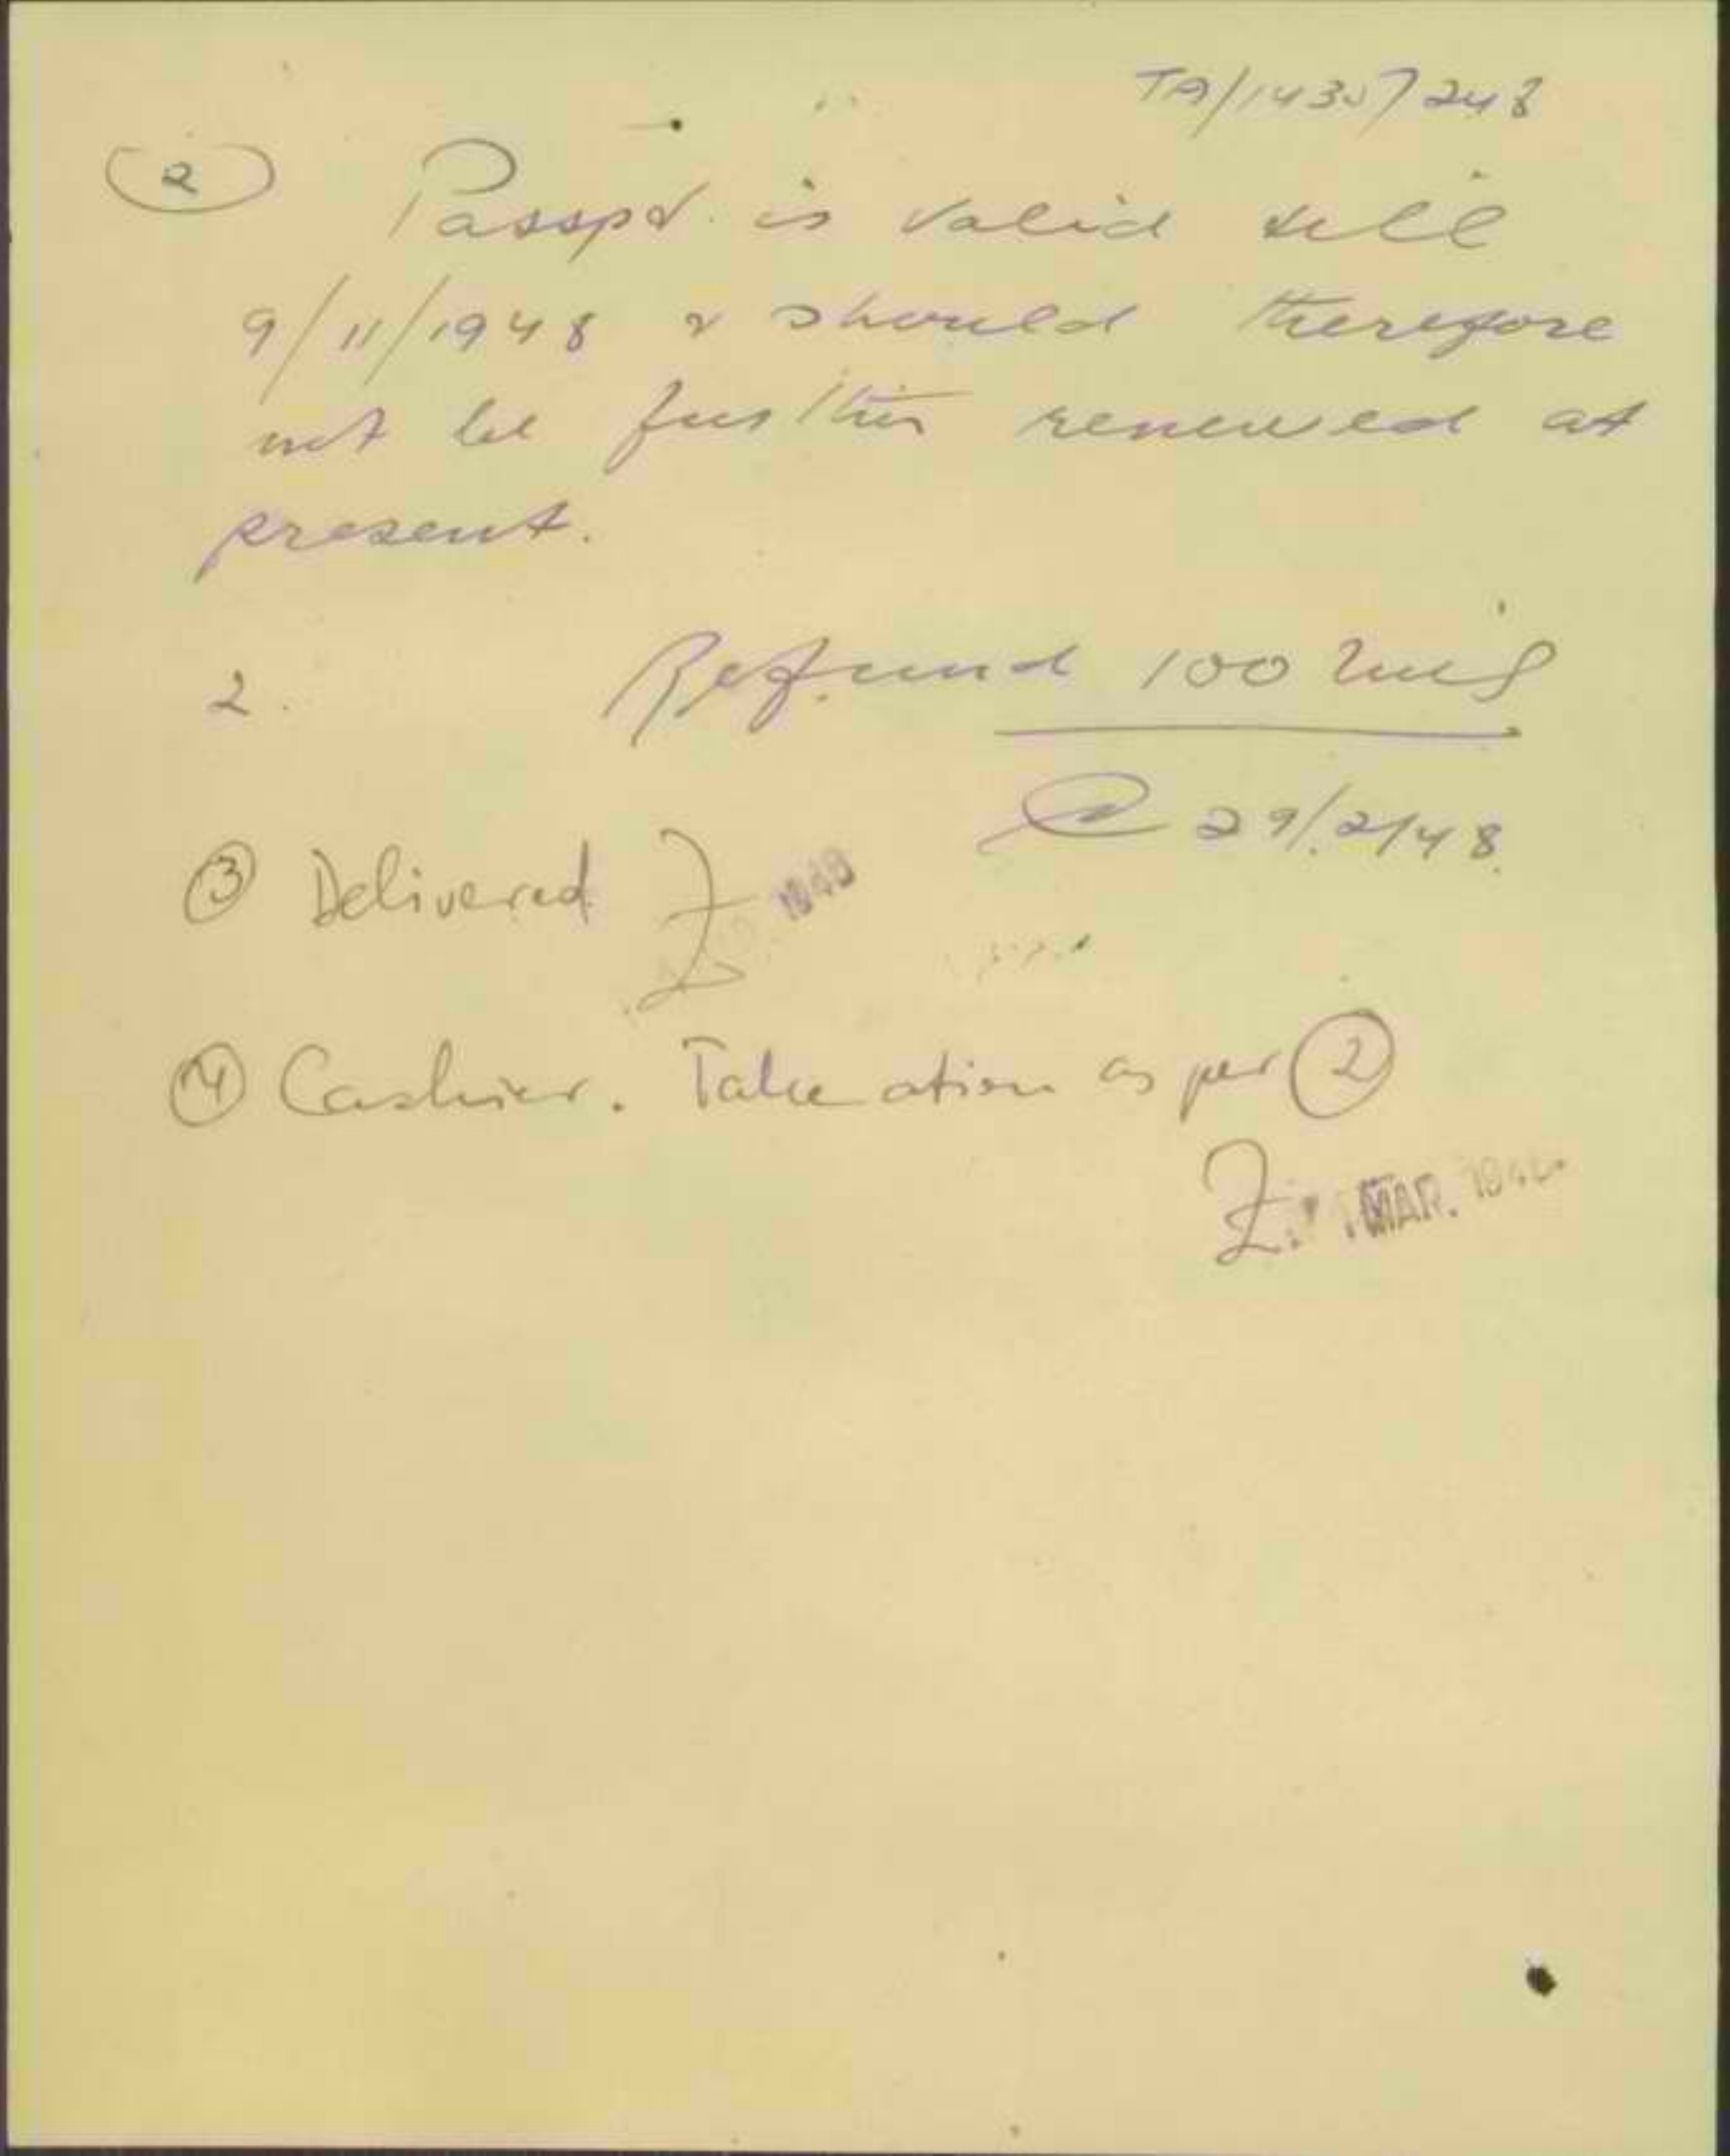 TA/14307/248
(2) Passpt. is valid till
9/11/1948 & should therefore
not be further renewed at
present.
2. Refund 100 mils
29/2/48.
(3) Delivered
1948
(4) Cashier. Take ation as per (2)
MAR. 194